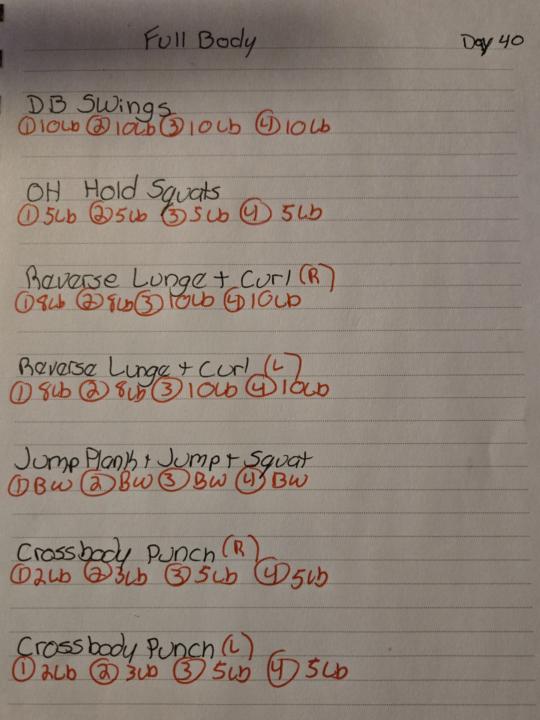 Full Body Day 40
DB Swings
① 10Lb ② 10Lb ③ 10Lb ④ 10Lb
OH Hold Squats
① 5Lb ② 5Lb ③ 5Lb ④ 5Lb
Reverse Lunge + Curl (R)
① 8Lb ② 8Lb ③ 10Lb ④ 10Lb
Reverse Lunge + Curl (L)
① 8Lb ② 8Lb ③ 10Lb ④ 10Lb
Jump Plank + Jump + Squat
① BW ② BW ③ BW ④ BW
Crossbody Punch (R)
① 2Lb ② 3Lb ③ 5Lb ④ 5Lb
Crossbody Punch (L)
① 2Lb ② 3Lb ③ 5Lb ④ 5Lb